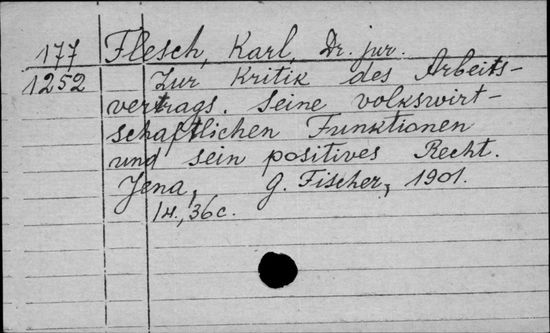 177 Flesch, Karl, Dr. jur.
1252 Zur Kritik des Arbeits-
vertrags. Seine volkswirt-
schaftlichen Funktionen
und sein positives Recht.
Jena, G. Fischer, 1901.
36c.